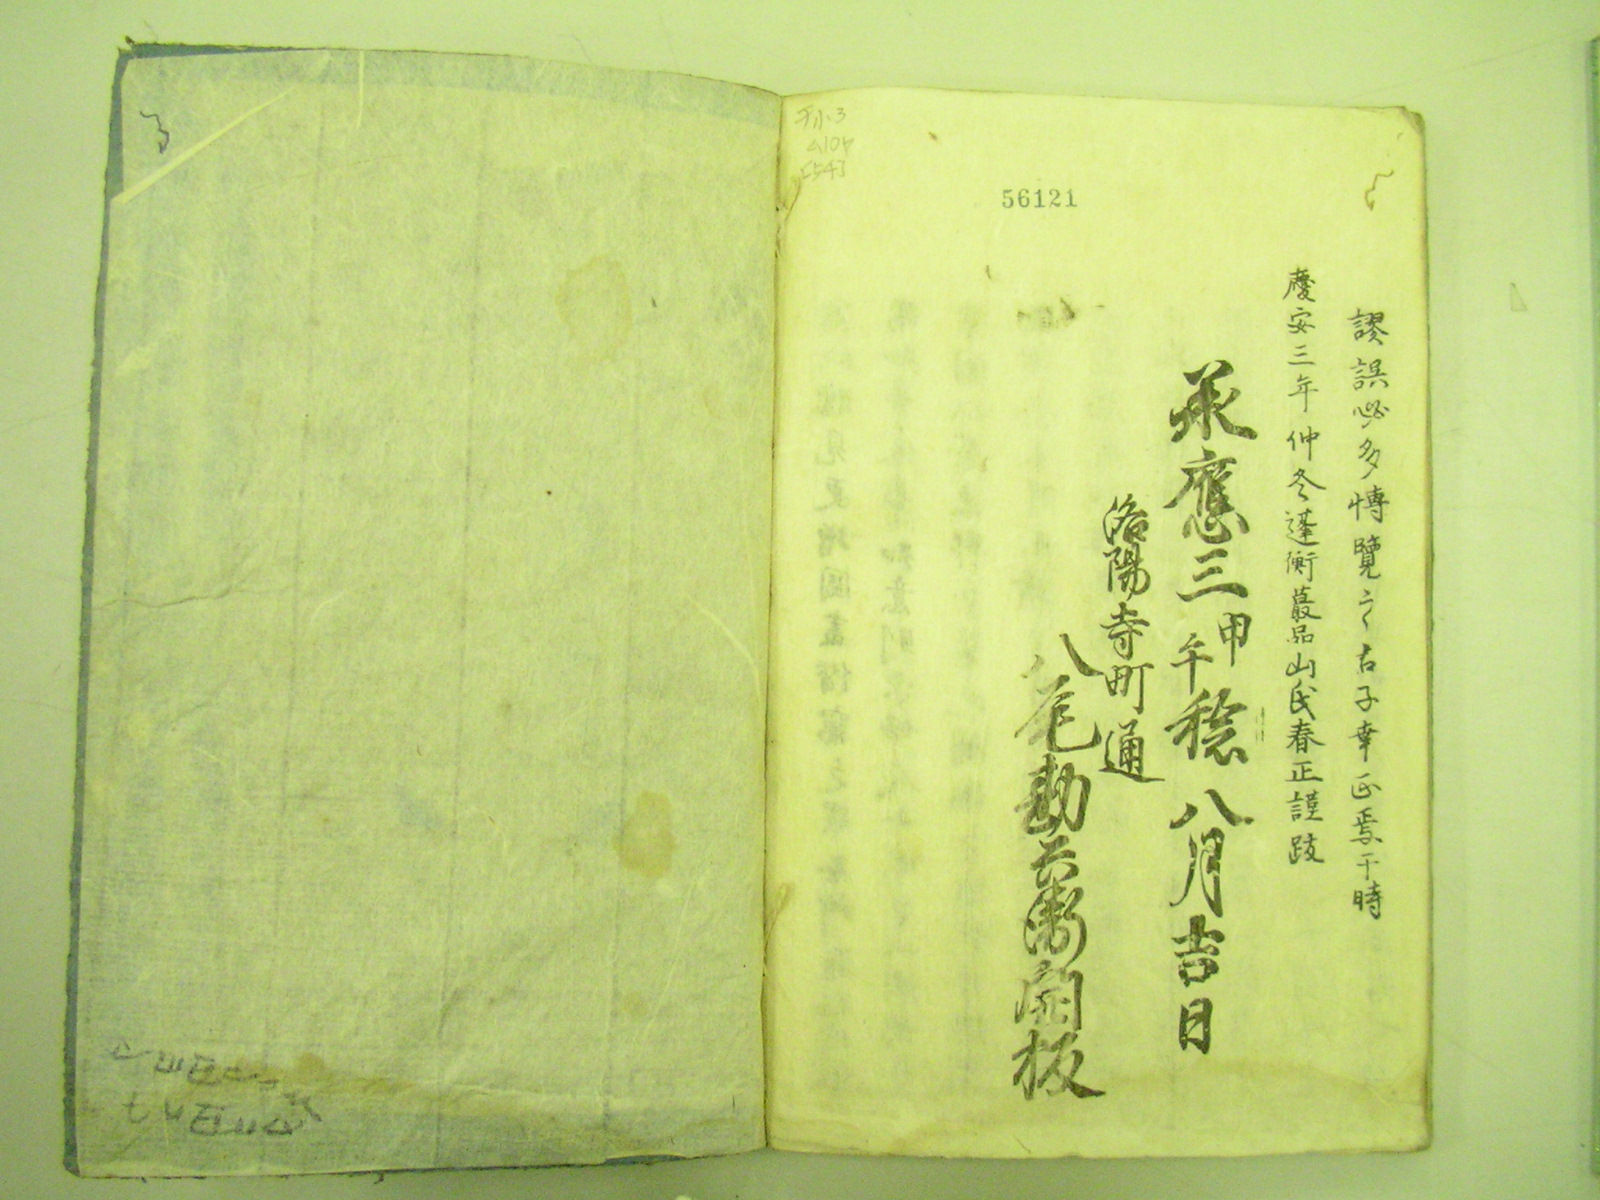 謬誤必多博覽之君子幸正焉于時
慶安三年仲冬蓬衡蕞品山氏春正謹跋
承應三甲午稔八月吉日
洛陽寺町通
八尾勘兵衛開板
56121